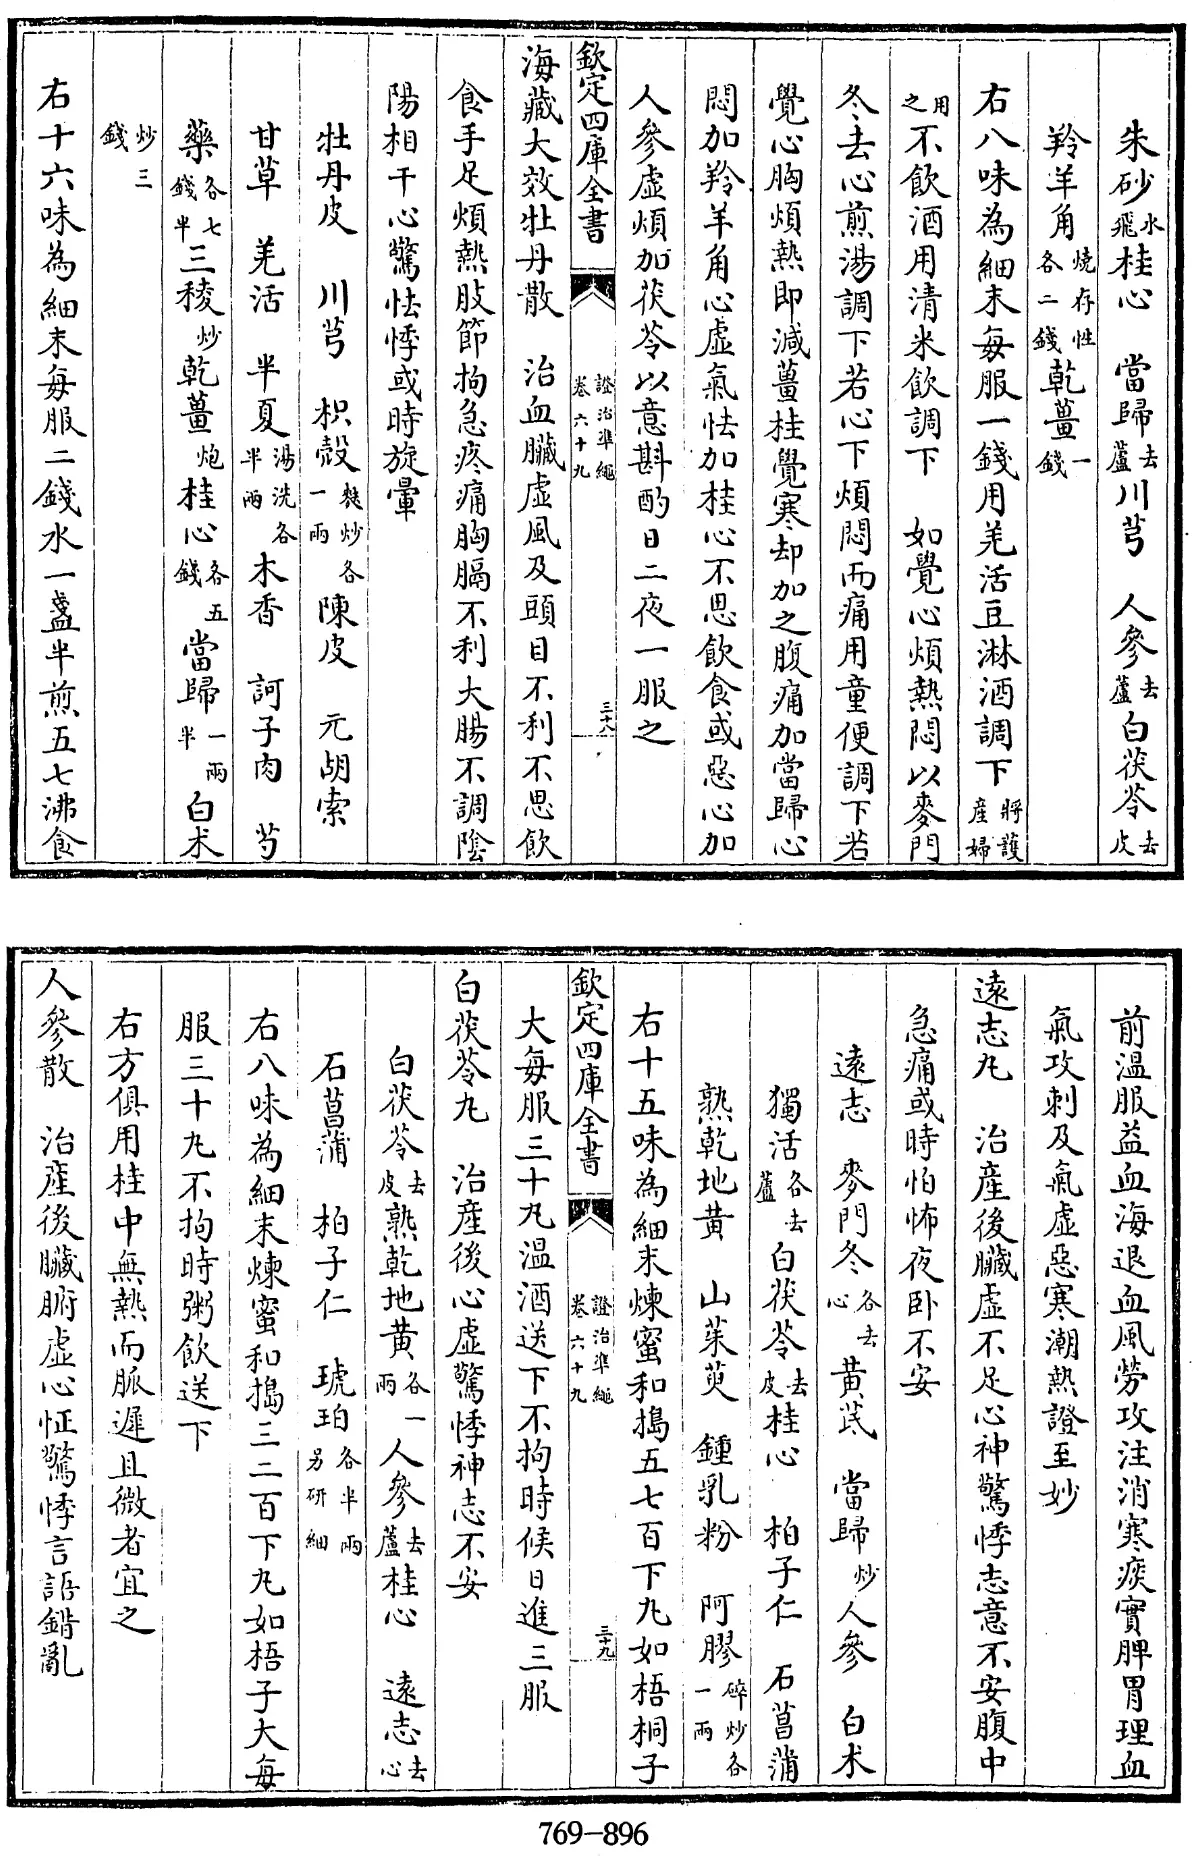 朱砂水飛桂心　當歸去蘆川芎　人參去蘆白茯苓去皮
羚羊角燒存性各二錢乾薑一錢
右八味為細末每服一錢用羌活豆淋酒調下將護產婦
用之不飲酒用清米飲調下　如覺心煩熱悶以麥門
冬去心煎湯調下若心下煩悶而痛用童便調下若
覺心胸煩熱即減薑桂覺寒却加之腹痛加當歸心
悶加羚羊角心虛氣怯加桂心不思飲食或惡心加
人參虛煩加茯苓以意斟酌日二夜一服之
欽定四庫全書　證治準繩卷六十九　三十八
海藏大效牡丹散　治血臟虛風及頭目不利不思飲
食手足煩熱肢節拘急疼痛胸膈不利大腸不調陰
陽相干心驚怯悸或時旋暈
牡丹皮　川芎　枳殼麩炒各一兩陳皮　元胡索
甘草　羌活　半夏湯洗各半兩木香　訶子肉　芍
藥各七錢半三稜炒乾薑炮桂心各五錢當歸一兩半白朮
炒三錢
右十六味為細末每服二錢水一盞半煎五七沸食
前溫服益血海退血風勞攻注消寒痰實脾胃理血
氣攻刺及氣虛惡寒潮熱證至妙
遠志丸　治產後臟虛不足心神驚悸志意不安腹中
急痛或時怕怖夜卧不安
遠志　麥門冬各去心黃芪　當歸炒人參　白朮
獨活各去蘆白茯苓去皮桂心　柏子仁　石菖蒲
熟乾地黃　山茱萸　鍾乳粉　阿膠碎炒各一兩
右十五味為細末煉蜜和搗五七百下丸如梧桐子
欽定四庫全書　證治準繩卷六十九　三十九
大每服三十丸溫酒送下不拘時候日進三服
白茯苓丸　治產後心虛驚悸神志不安
白茯苓去皮熟乾地黃各一兩人參去蘆桂心　遠志去心
石菖蒲　柏子仁　琥珀各半兩另研細
右八味為細末煉蜜和搗三二百下丸如梧子大每
服三十丸不拘時粥飲送下
右方俱用桂中無熱而脈遲且微者宜之
人參散　治產後臟腑虛心怔驚悸言語錯亂
769-896